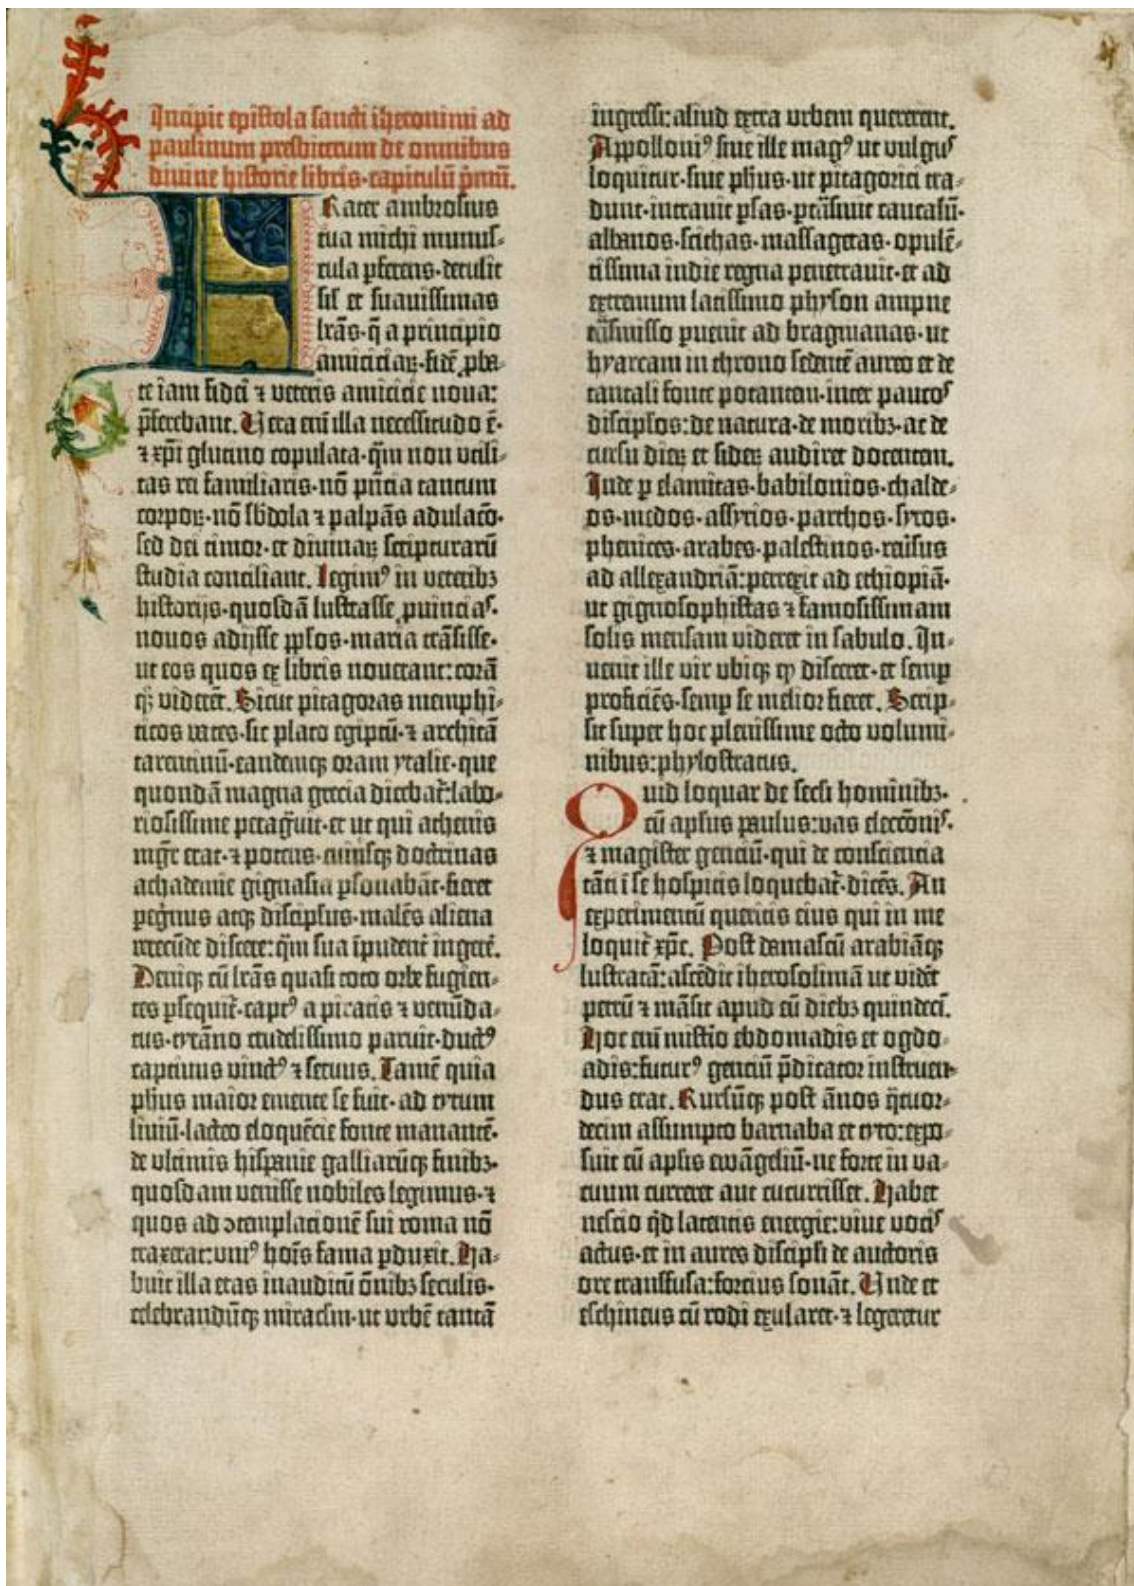 Incipit epistola sancti iheronimi ad
paulinum presbiterum de omnibus
divine historie libris·capitulū pmū.
Frater ambrosius
tua michi munus-
cula pferens·detulit
sil et suavissimas
lrās·q̄ a principio
amiciciaꝝ·fidē ꝓba-
te iam fidei ⁊ veteris amicicie noua:
pferebant. Vera eni illa necessitudo ē·
⁊ xp̄i glutino copulata·qm̄ non utili-
tas rei familiaris·nō pn̄cia tantum
corpoꝝ·nō sbdola ⁊ palpās adulacō·
sed dei timor·et diuinaꝝ scripturarū
studia conciliant. Legimꝰ in veteribꝫ
historijs·quosdā lustrasse ꝓuincias·
nouos adijsse pplos·maria trāsisse·
ut eos quos ex libris nouerant: corā
qꝫ viderēt. Sicut pitagoras memphi-
ticos vates·sic plato egiptū·⁊ architā
tarentinū·eandemqꝫ oram ytalie·que
quondā magna grecia dicebat̄: labo-
riosissime peragūit·et ut qui athenis
mgr̄ erat·⁊ potens·cuiusqꝫ doctrinas
achademie gignasia ꝑsonabāt·fieret
peg̊nus atqꝫ discipulus·malēs aliena
verecūde discere: qm̄ sua īpudent̄ ingerē.
Deniqꝫ cū lrās quasi toto orbe fugien-
tes ꝑsequit̄·captꝰ a piratis ⁊ venūda-
tus·tyrāno crudelissimo paruit·ductꝰ
captiuus vinctꝰ ⁊ seruus. Tamē quia
phus maior emente se fuit·ad tytum
liuiū·lacteo eloquēcie fonte manantē·
de ultimis hispanie galliarūqꝫ finibꝫ·
quosdam venisse nobiles legimus·⁊
quos ad ↄtemplacionē sui roma nō
traxerat: uniꝰ hoīs fama ꝑduxit. Ha-
buit illa etas inauditū ōnibꝫ seculis·
celebrandūqꝫ miraclm·ut urbē tantā
ingressi: aliud extra urbem quererent.
Appolloniꝰ siue ille magꝰ ut vulgus
loquitur·siue phus·ut pitagorici tra-
dunt·intrauit psas·ptrāsiuit caucasū·
albanos·scithas·massagetas·opulē-
tissima indie regna penetrauit·et ad
extremum latissimo physon ampne
trāsmisso puenit ad bragmanas·ut
hyarcam in throno sedentē aureo et de
tantali fonte potantem·inter paucos
discipulos: de natura·de moribꝫ·ac de
cursu dieꝝ et sideꝝ audiret docentem.
Inde ꝑ elamitas·babilonios·chalde-
os·medos·assyrios·parthos·syros·
phenices·arabes·palestinos·reūsus
ad allexandriā: perrexit ad ethiopiā·
ut gignosophistas ⁊ famosissimam
solis mensam videret in sabulo. In-
uenit ille vir ubiqꝫ qɜ disceret·et semp
proficiēs·semp se melior fieret. Scrip-
sit super hoc plenissime octo volumi-
nibus: phylostratus.
Quid loquar de secli hominibꝫ·
cū aplus paulus: vas eleccōnis·
⁊ magister genciū·qui de consciencia
tāti ī se hospitis loquebat̄·dicēs. An
experimentū queritis eius qui in me
loquit̄ xp̄c. Post damascū arabiāqꝫ
lustratā: ascēdit iherosolimā ut videt
petrū ⁊ māsit apud eū diebꝫ quindeci.
Hoc eni mistio ebdomadis et ogdo-
adis: futurꝰ genciū p̄dicator instruen-
dus erat. Rursūqꝫ post ānos q̄tuor-
decim assumpto barnaba et tyto: expo-
suit cū aplis ewāgeliū·ne forte in va-
cuum curreret aut cucurrisset. Habet
nescio qd̄ latentis energie: viue vocis
actus·et in aures discipuli de auctoris
ore transfusa: forcius sonāt. Unde et
eschineus cū rodi exularet·⁊ legeretur